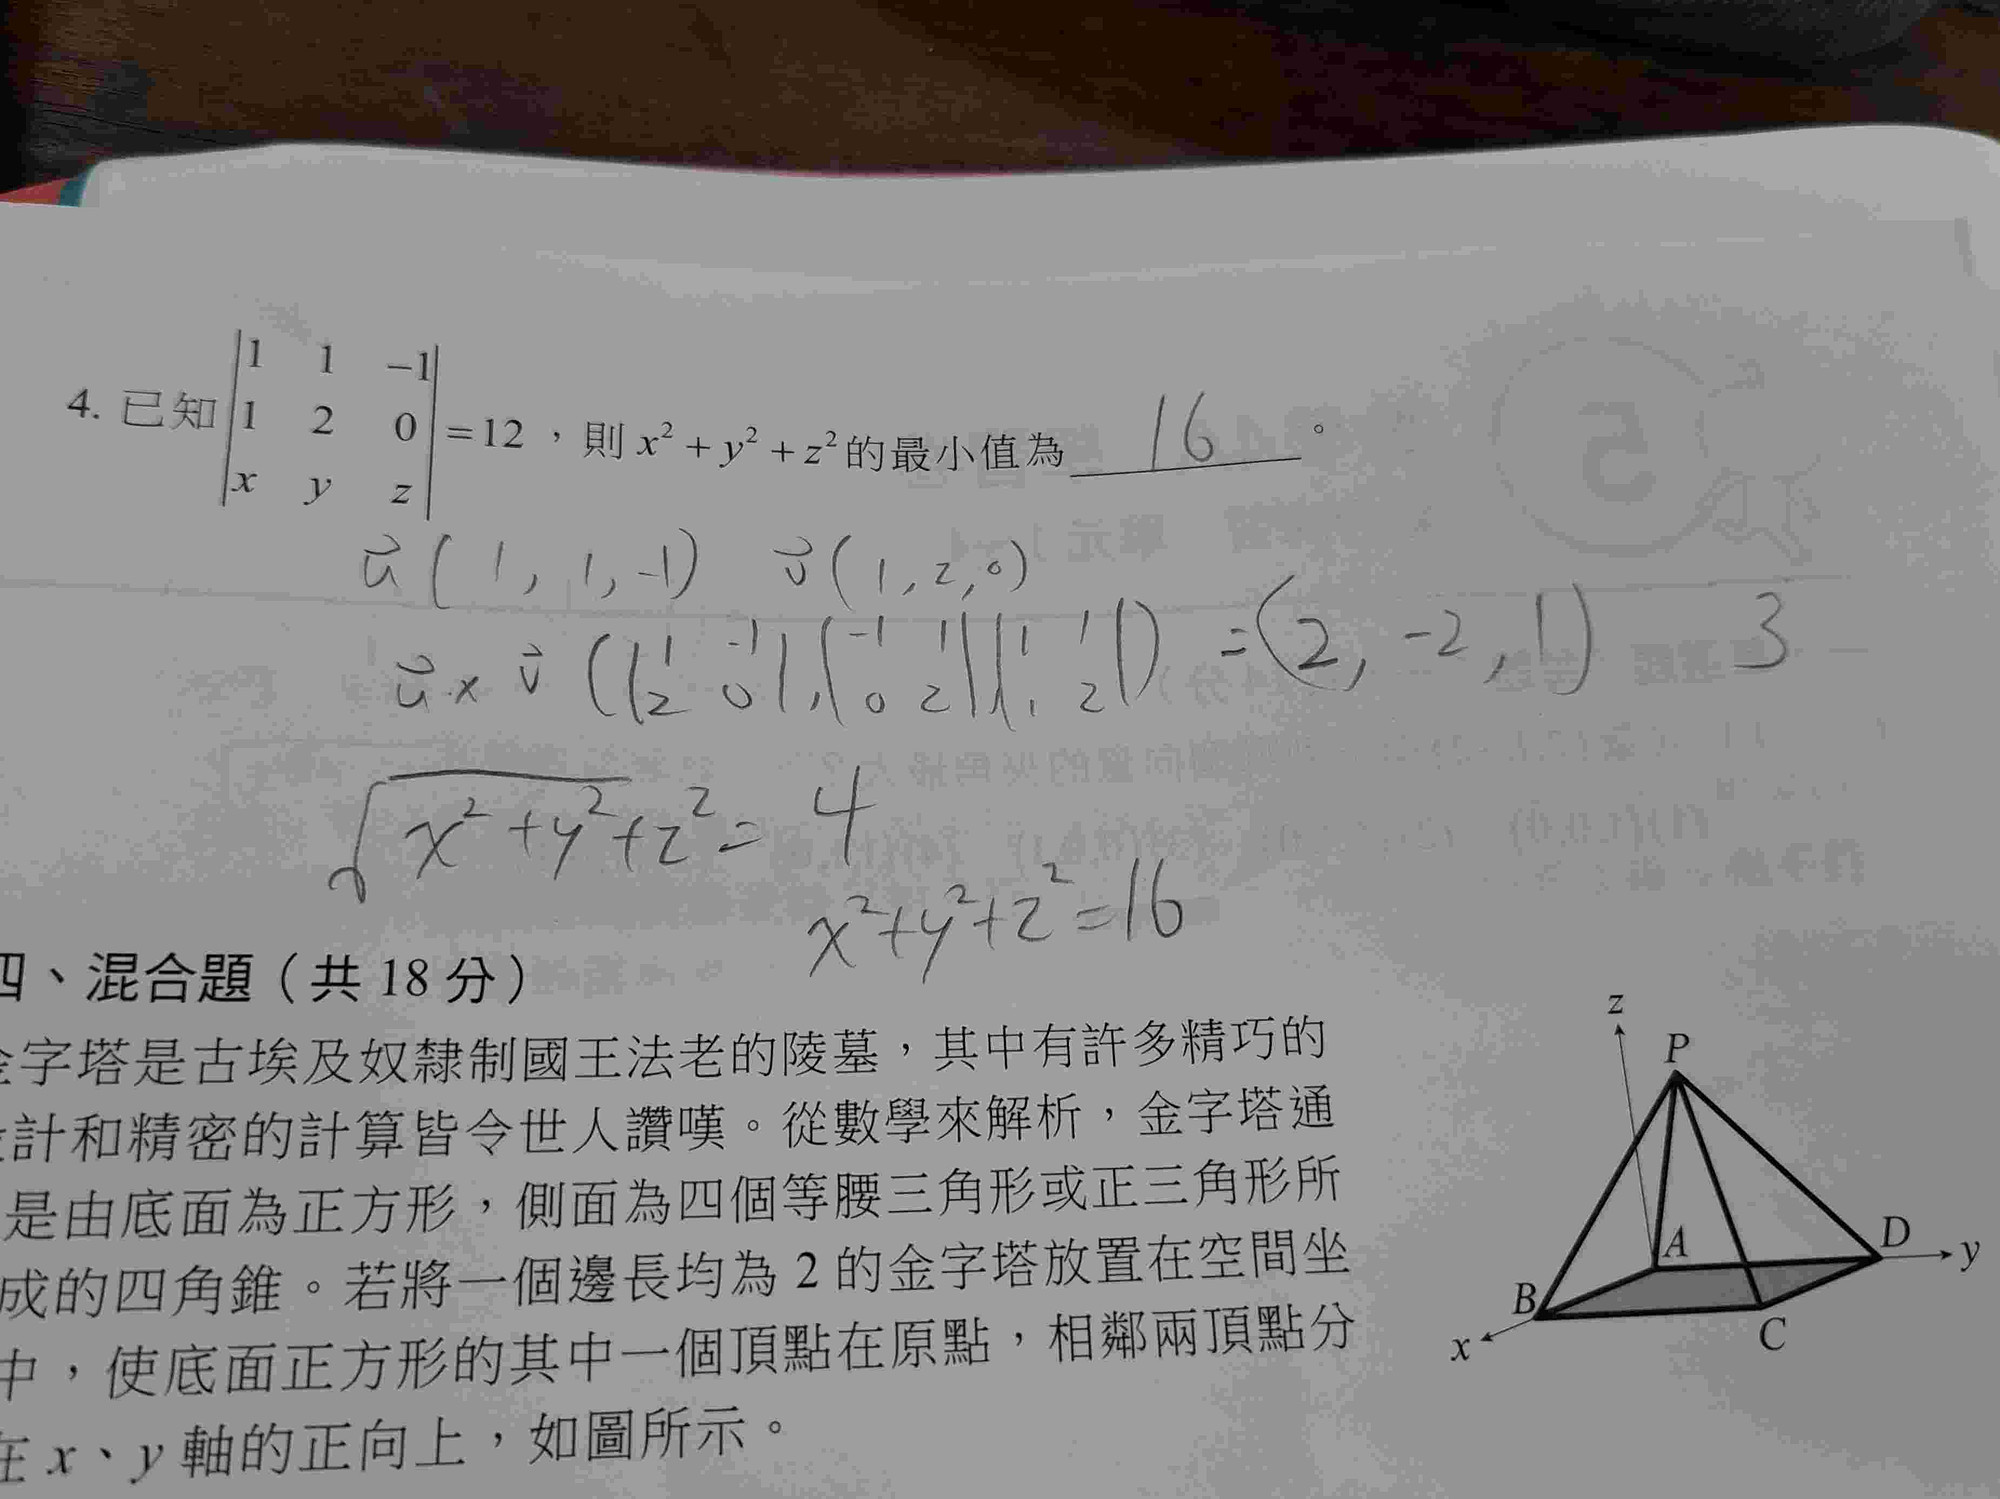 4. 已知 | 1 1 −1 | = 12，則 x² + y² + z² 的最小值為 16 。
| 1 2 0 |
| x y z |
u⃗ ( 1 , 1, -1) v⃗ ( 1, 2, 0)
u⃗ × v⃗ ( | 1 -1 | , | -1 1 | | 1 1 | ) = (2, -2, 1) 3
| 2 0 | | 0 2 | | 1 2 |
√x² + y² + z² = 4
x² + y² + z² = 16
四、混合題（共 18 分）
金字塔是古埃及奴隸制國王法老的陵墓，其中有許多精巧的
計和精密的計算皆令世人讚嘆。從數學來解析，金字塔通
是由底面為正方形，側面為四個等腰三角形或正三角形所
成的四角錐。若將一個邊長均為 2 的金字塔放置在空間坐
中，使底面正方形的其中一個頂點在原點，相鄰兩頂點分
在 x、y 軸的正向上，如圖所示。
z
P
A
D
y
B
C
x